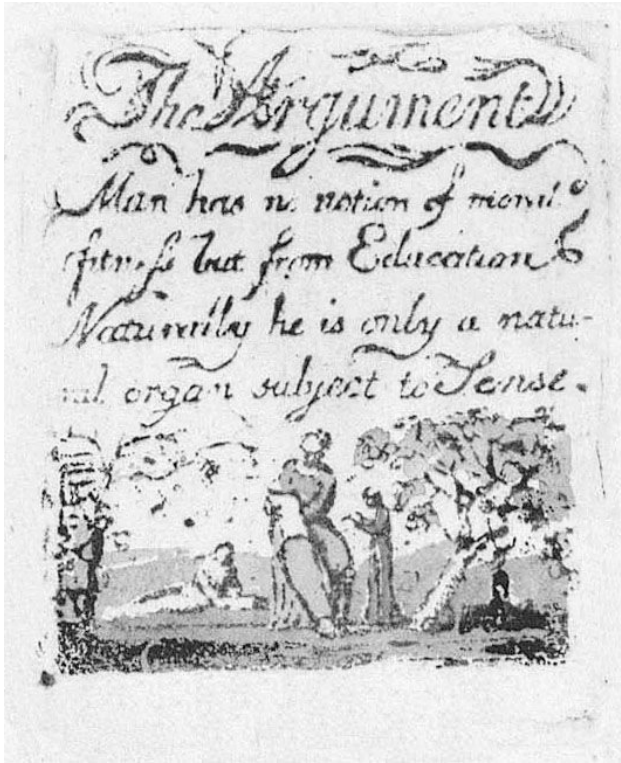 The Argument
Man has no notion of moral
fitness but from Education
Naturally he is only a natu-
ral organ subject to Sense.